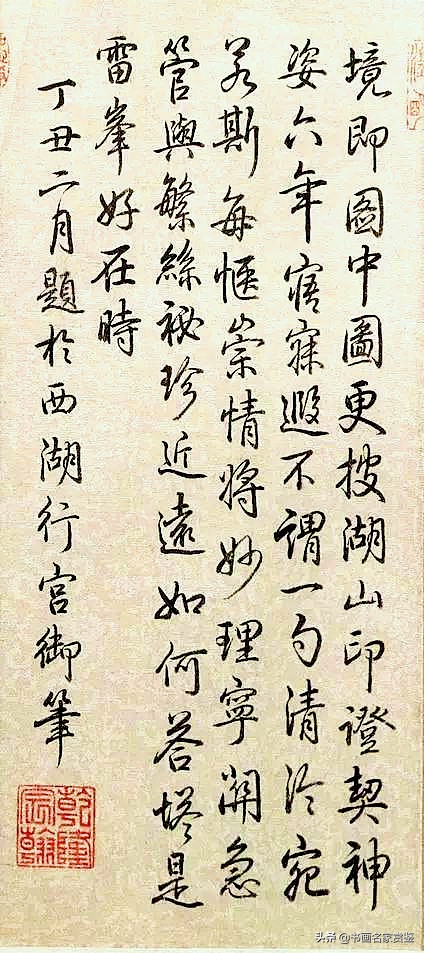 境即圖中圖更披湖山印證契神
姿六年寤寐遐不謂一勺清泠宛
若斯每愜崇情將妙理寧關急
管與繁絲祕珍近遠如何荅塔是
雷峯好在時
丁丑二月題於西湖行宮御筆
乾隆宸翰
头条 @书画名家赏鉴